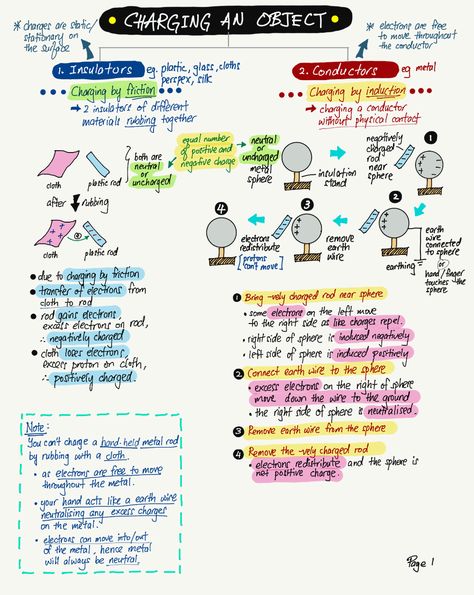 CHARGING AN OBJECT
* charges are static/
stationary on
the surface
* electrons are free
to move throughout
the conductor
1. Insulators
eg. plastic, glass, cloths
perspex, silk
Charging by friction
→ 2 insulators of different
materials rubbing together
2. Conductors
eg metal
Charging by induction
→ charging a conductor
without physical contact
cloth
plastic rod
both are
neutral
or
uncharged
equal number
of positive and
negative charge
neutral
or
uncharged
metal
sphere
insulation
stand
negatively
charged
rod
near
sphere
1
after
rubbing
cloth
plastic rod
4
electrons
redistribute
[protons
can't move]
3
remove
earth
wire
2
earth
wire
connected
to sphere
earthing
or
hand/finger
touches the
sphere
• due to charging by friction
• transfer of electrons from
cloth to rod
• rod gains electrons,
excess electrons on rod,
∴ negatively charged
• cloth loses electrons,
excess proton on cloth,
∴ positively charged
1 Bring -vely charged rod near sphere
• some electrons on the left move
to the right side as like charges repel
• right side of sphere is induced negatively
• left side of sphere is induced positively
2 Connect earth wire to the sphere
• excess electrons on the right of sphere
move down the wire to the ground
• the right side of sphere is neutralised.
3 Remove earth wire from the sphere
4 Remove the -vely charged rod
• electrons redistribute and the sphere is
net positive charge.
Note:
You can't charge a hand-held metal rod
by rubbing with a cloth.
• as electrons are free to move
throughout the metal.
• your hand acts like a earth wire
neutralising any excess charges
on the metal.
• electrons can move into/out
of the metal, hence metal
will always be neutral,
Page 1